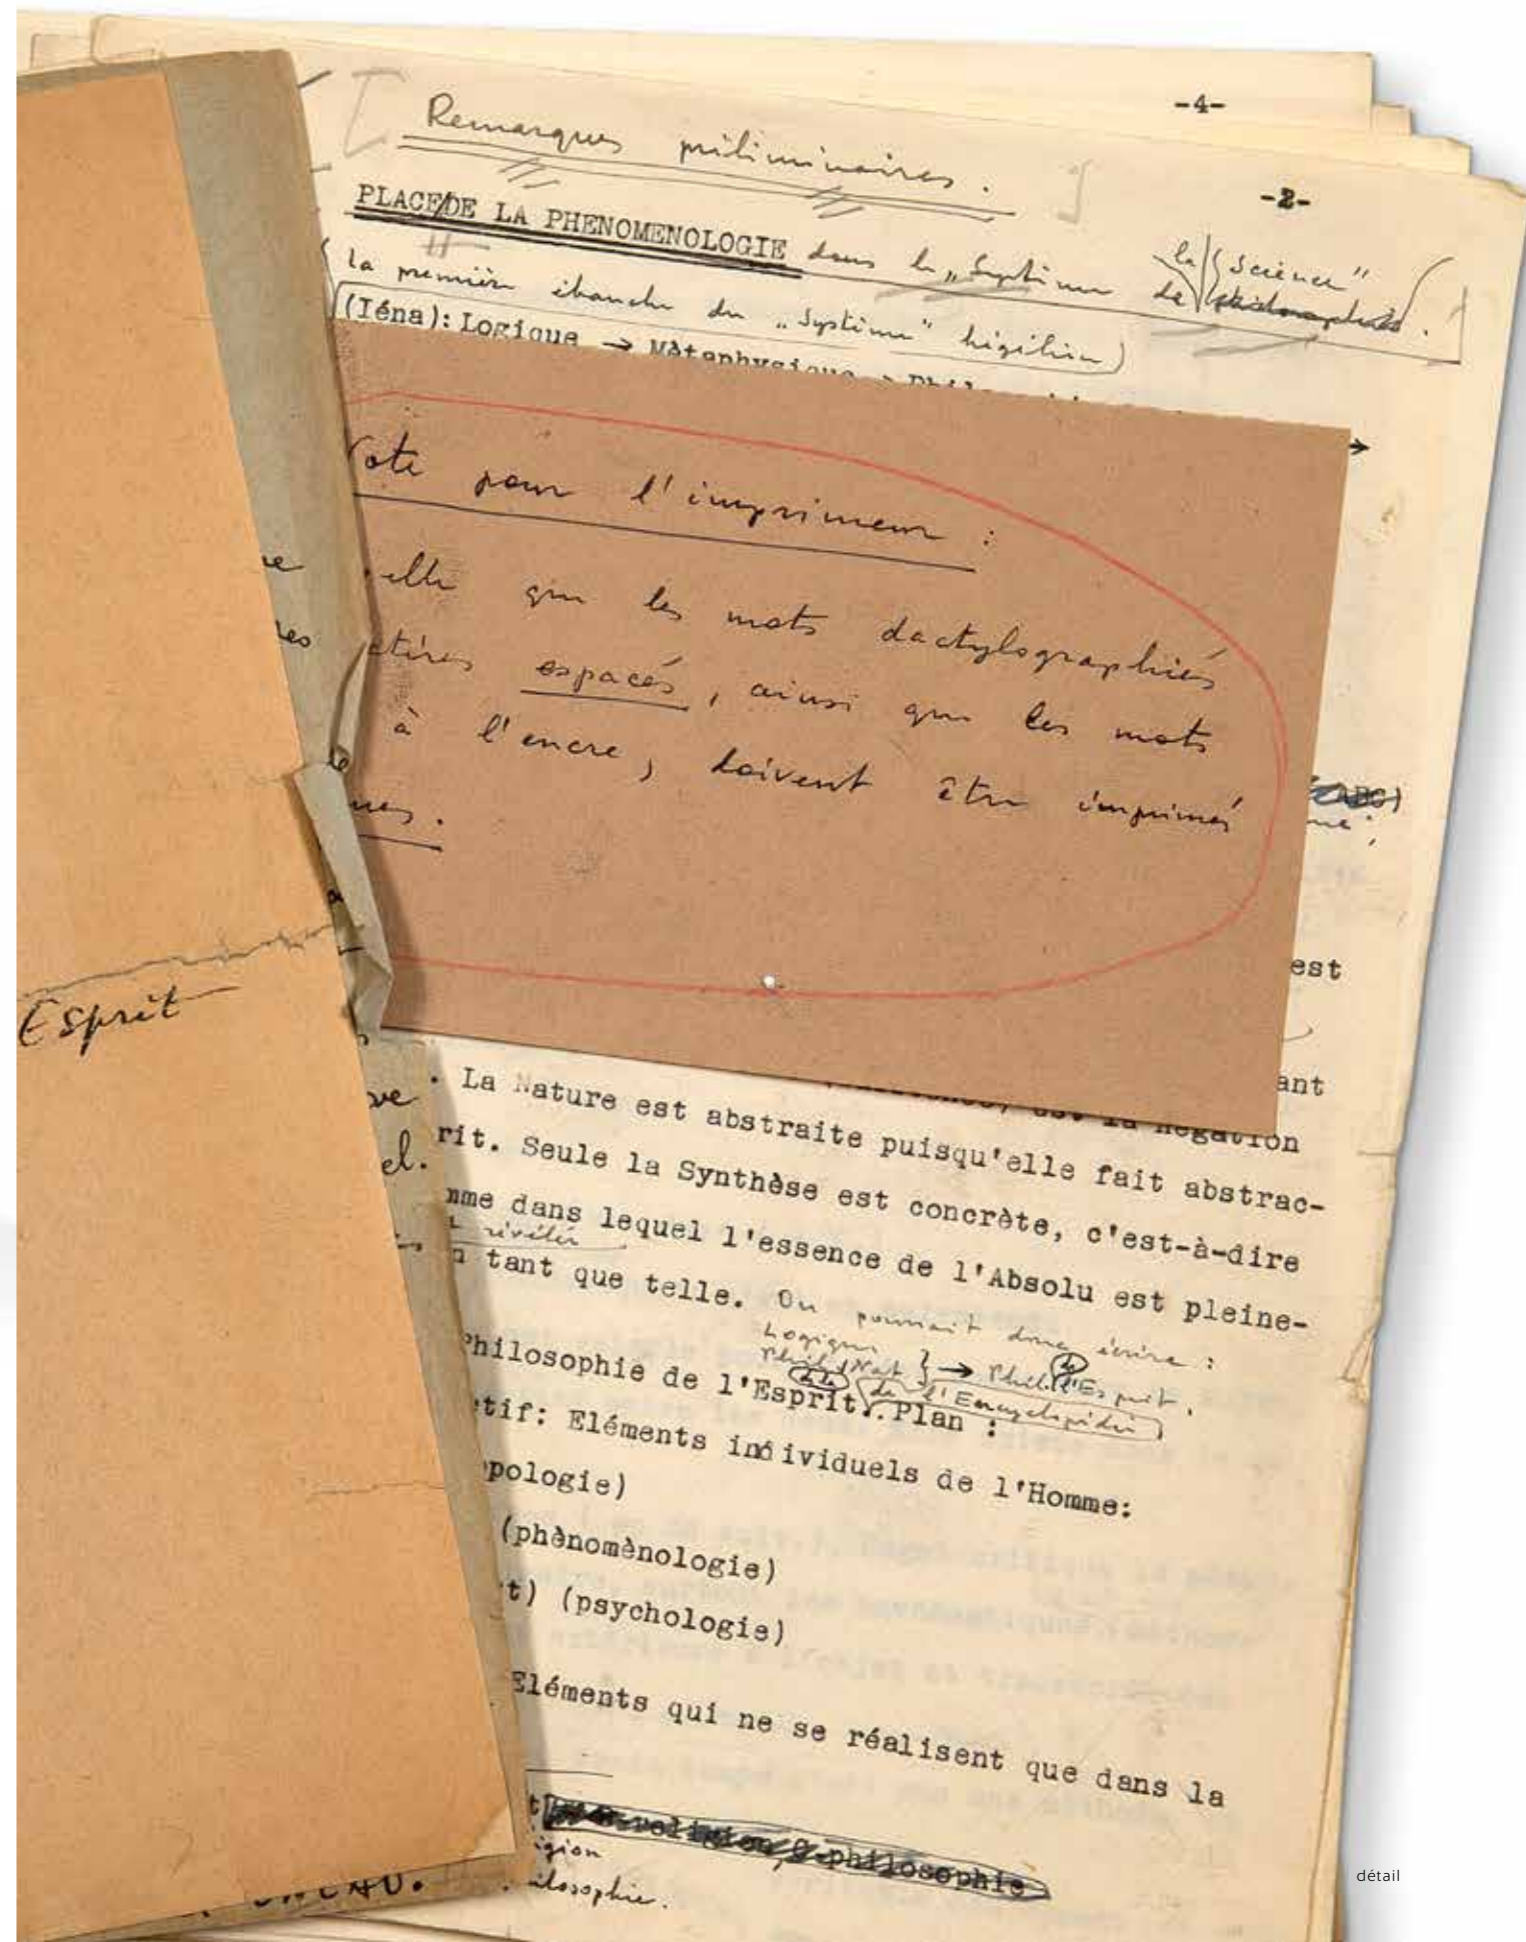 -4-
Remarques préliminaires.
-2-
PLACE/DE LA PHENOMENOLOGIE dans le „Système
la Science"
de
(la première ébauche du „Système" hégélien)
(Iéna): Logique → Mètaphysique →
→
ote pour l'imprimeur :
elle que les mots dactylographiés
ctères espacés, ainsi que les mots
à l'encre, doivent être imprimés
ues.
est
ant
est la négation
. La Nature est abstraite puisqu'elle fait abstrac-
rit. Seule la Synthèse est concrète, c'est-à-dire
mme dans lequel l'essence de l'Absolu est pleine-
t révélée
n tant que telle. On pourrait donc écrire :
Logique
Phil. de la Nat } → Phil. de l'Esprit.
Philosophie de l'Esprit. (de l'Encyclopédie) Plan :
tif: Eléments individuels de l'Homme:
pologie)
(phènomènologie)
t) (psychologie)
Eléments qui ne se réalisent que dans la
religion philosophie
igion
ilosophie.
Esprit
détail